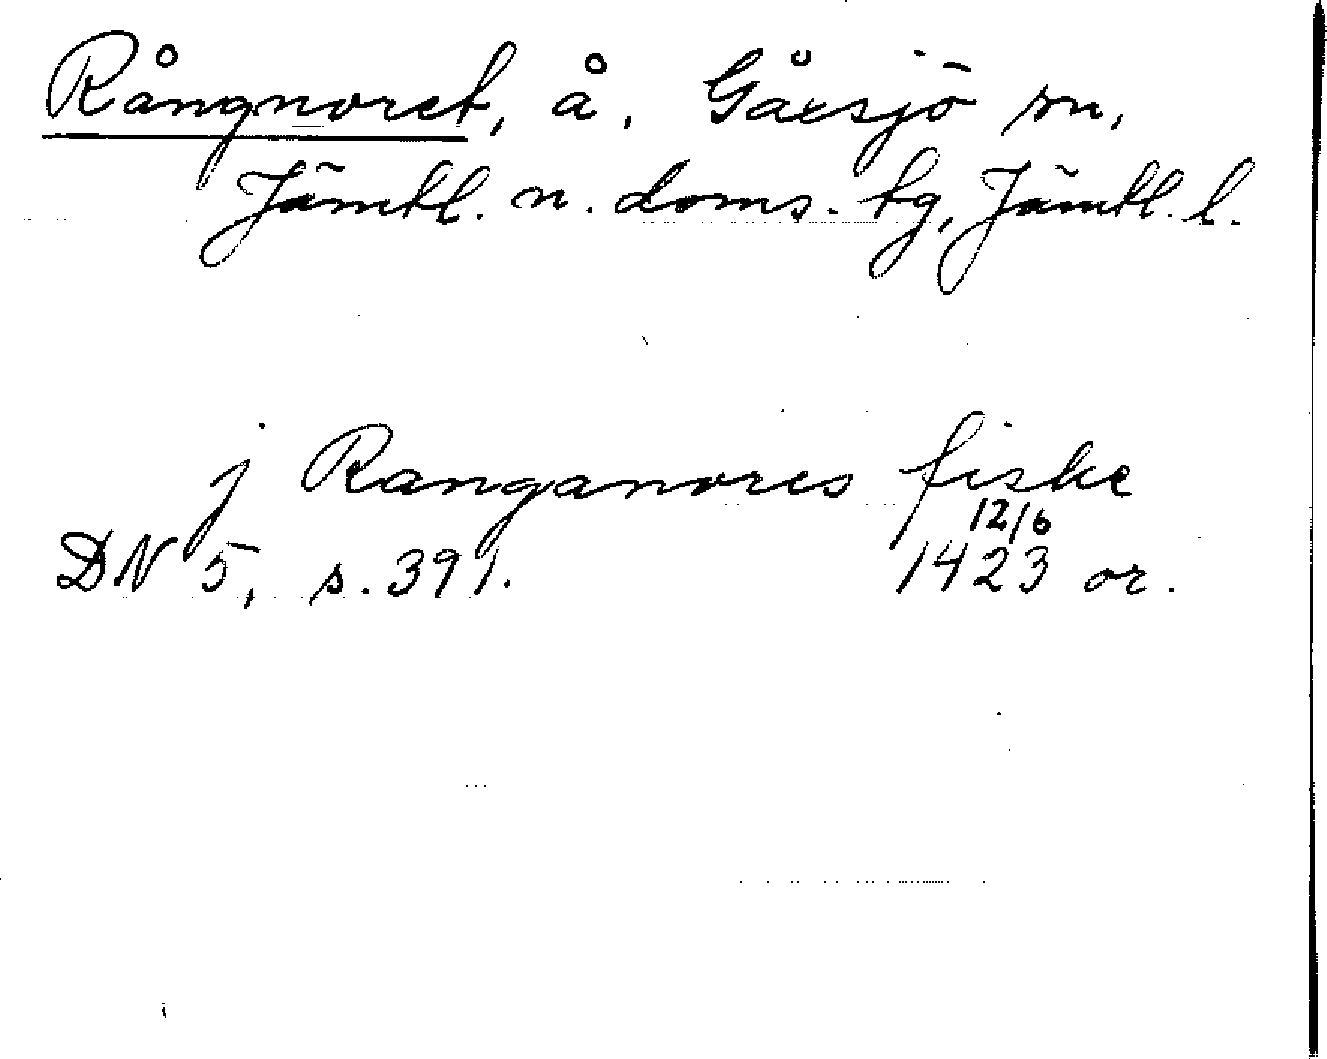 Rångnoret, å, Gåxsjö sn,
Jämtl. n. doms. tg, Jämtl. l.
j Ranganores fiske
12/6
DN 5, s. 391. 1423 or.